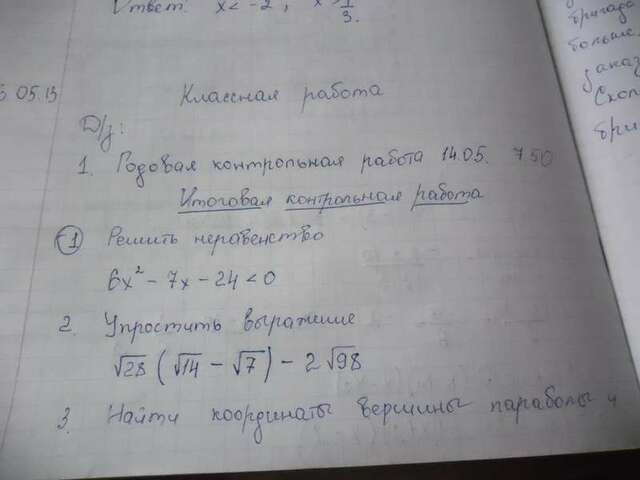 Ответ: x < -2; x > 1/3.
05.13
Классная работа
Д/з:
1. Годовая контрольная работа 14.05. 7 50
Итоговая контрольная работа
1 Решить неравенство
6x² - 7x - 24 < 0
2. Упростить выражение
√28 (√14 - √7) - 2√98
3. Найти координаты вершины параболы и
бригада
больше
заказ
Скол
бри